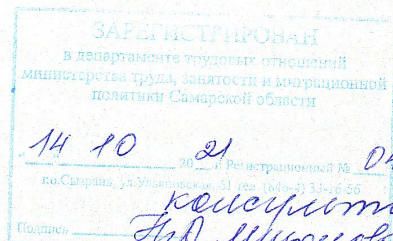 ЗАРЕГИСТРИРОВАН
в департаменте трудовых отношений
министерства труда, занятости и миграционной
политики Самарской области
14 10 20 21 г. Регистрационный №
г.о.Сызрань, ул.Ульяновская, 51 тел. (846-4) 33-16-56
консульта
Подпись